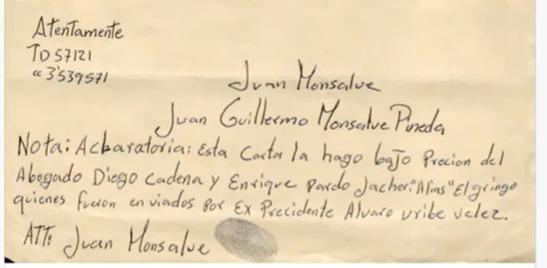 Atentamente
TD 57121
cc 3'539571
Juan Monsalve
Juan Guillermo Monsalve Pineda
Nota: Acbaratoria: Esta Carta la hago bajo Precion del
Abogado Diego Cadena y Enrique pardo Jacher: "Alias" El gringo
quienes fueron enviados por Ex Precidente Alvaro uribe velez.
ATT: Juan Monsalve